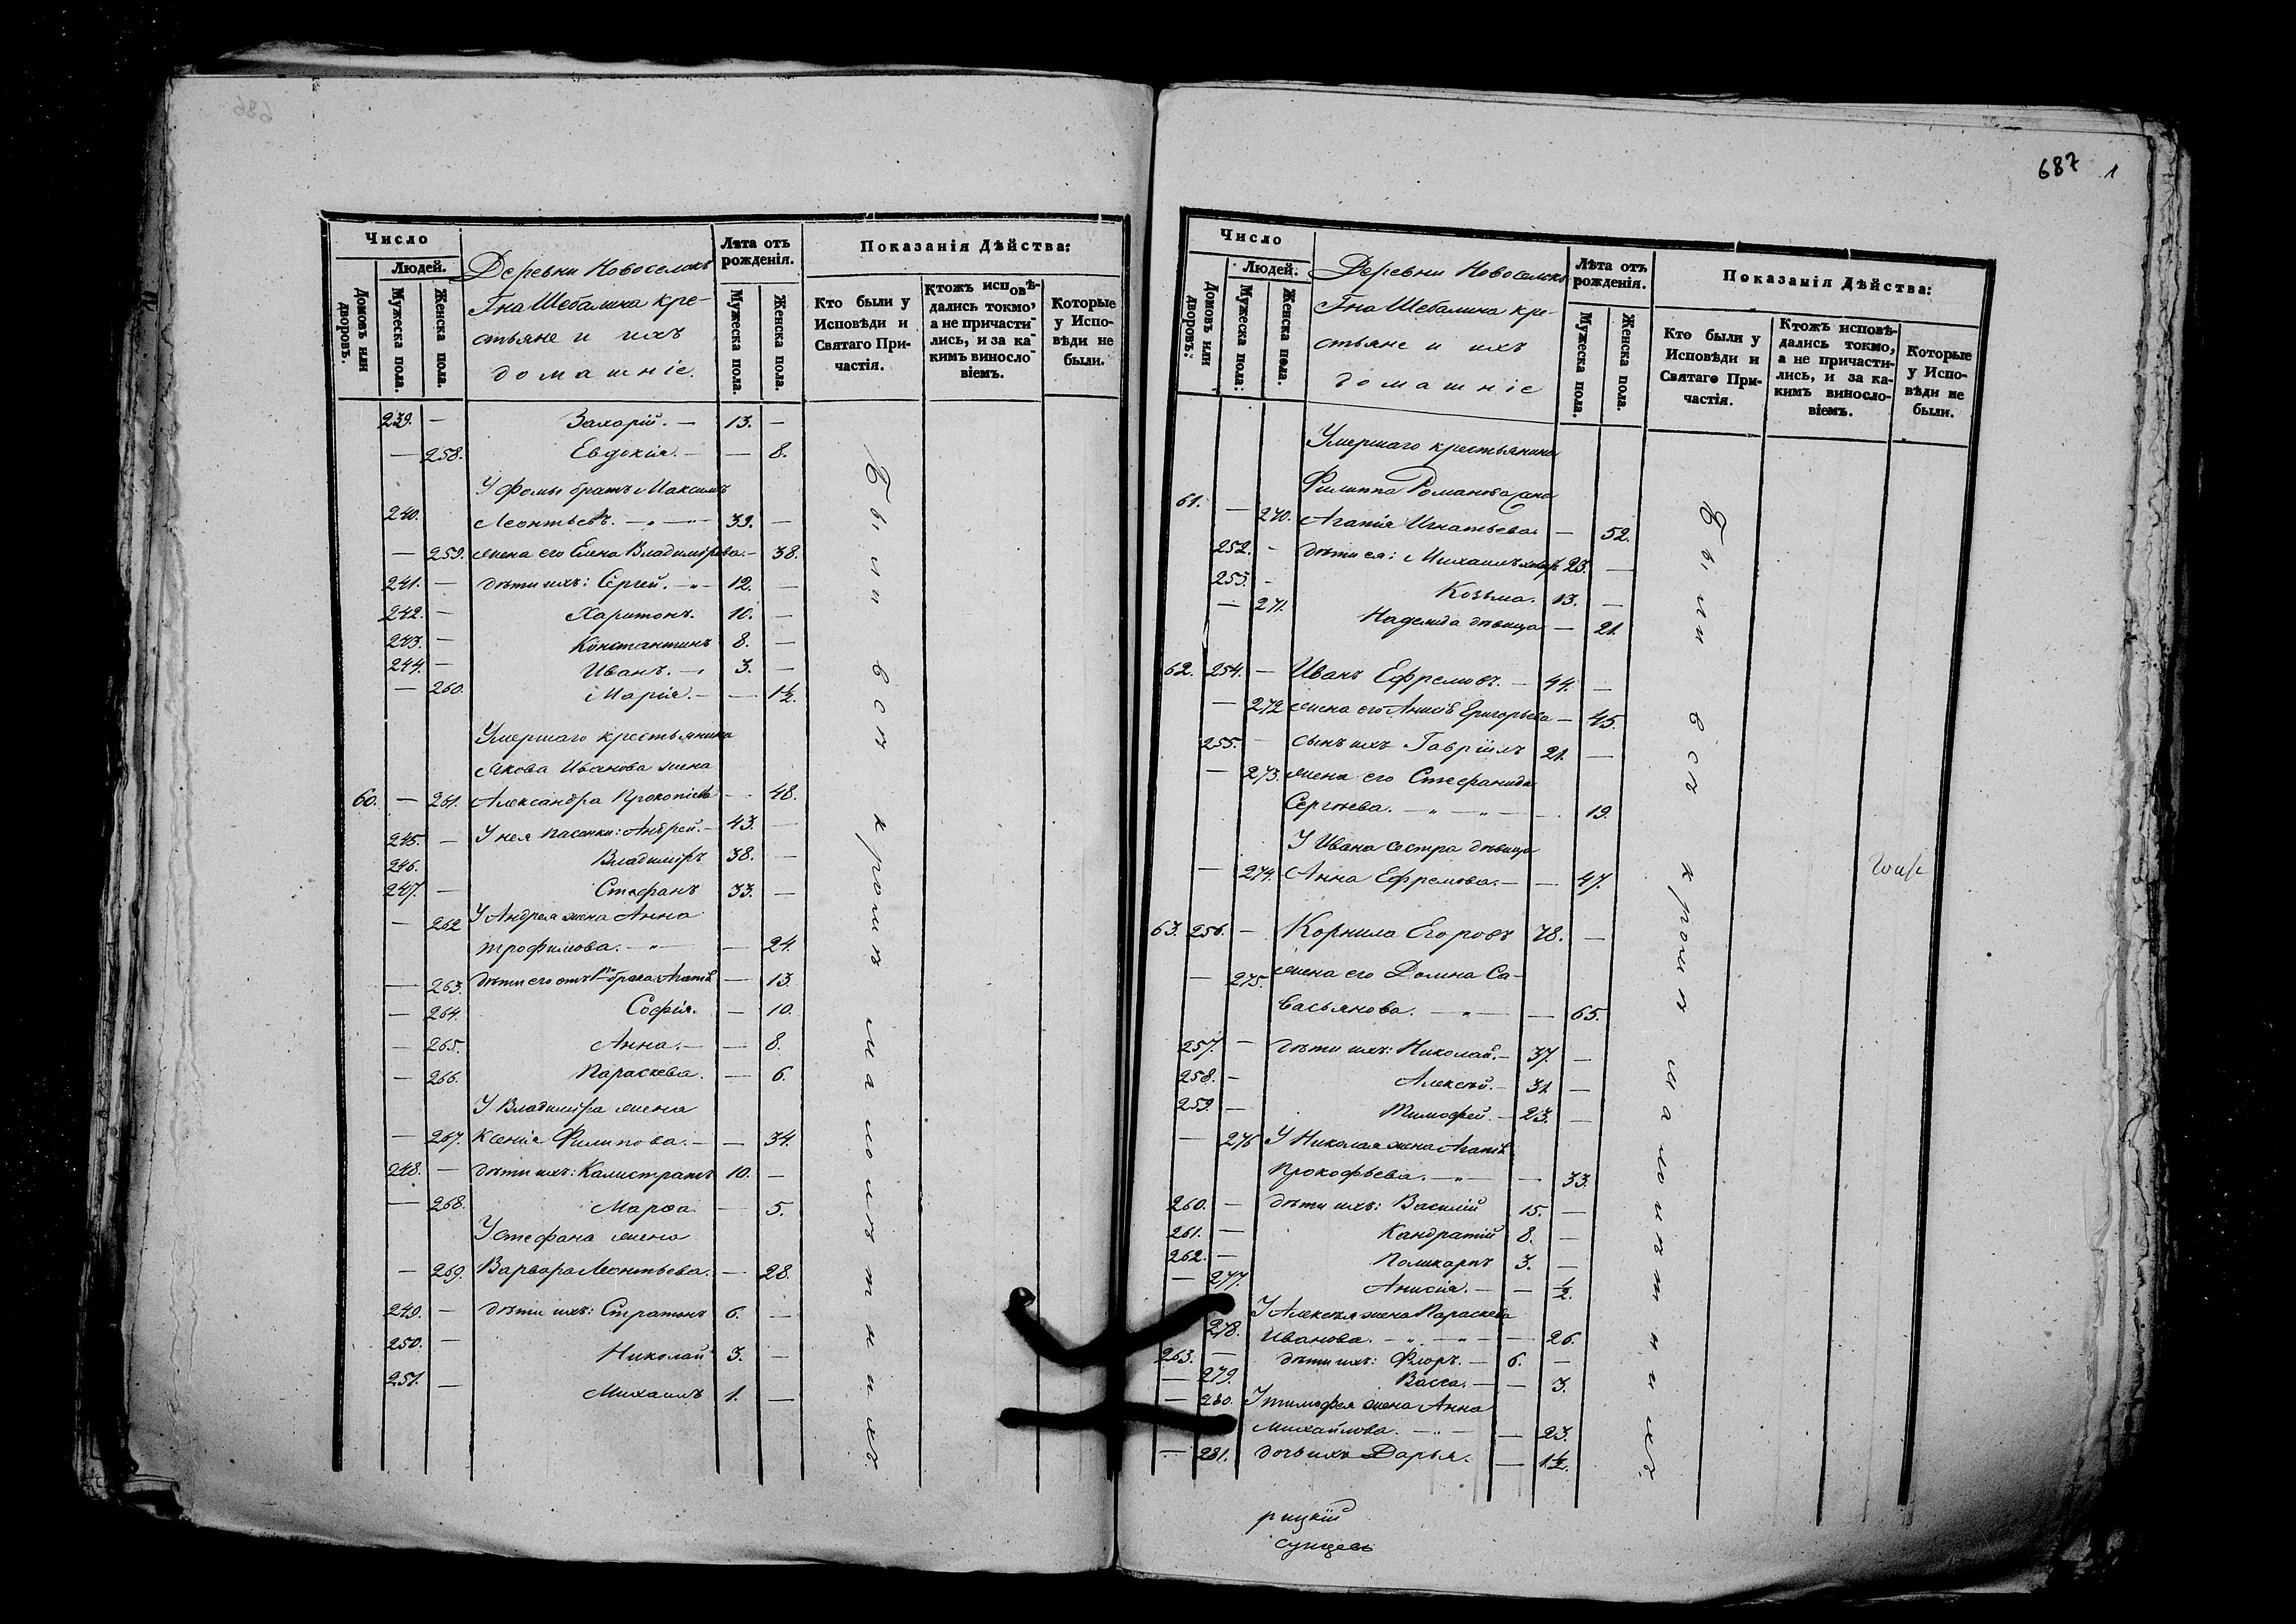 686
Число
Людей.
Домовъ или дворовъ.
Мужеска пола.
Женска пола.
Деревни Новоселокъ
Гна Шебалина кре-
стьяне и ихъ
домашніе.
Лѣта отъ рожденія.
Мужеска пола.
Женска пола.
Показанія Дѣйства:
Кто были у Исповѣди и Святаго Причастія.
Ктожъ исповѣдались токмо, а не причастились, и за какимъ винословіемъ.
Которые у Исповѣди не были.
239. — Захарій. — 13. —
— 258. Евдокія. — — 8.
У Фомы братъ Максимъ
240. Леонтьевъ. — „ — 39. —
— 259. жена его Елена Владимірова. — 38.
241. — дѣти ихъ: Сергей. — „ 12. —
242. — Харитонъ. 10. —
243. — Константинъ 8. —
244. — Иванъ. — 3. —
— 260. Марія. — — 1½.
Умершаго крестьянина
Якова Иванова жена
60. — 261. Александра Прокопіева — 48.
245. — У нея пасынки: Андрей. — 43. —
246. Владиміръ 38. —
247. — Стефанъ 33. —
— 262 У Андрея жена Анна
трофимова. — „ — — 24.
— 263. дѣти его отъ 1го брака: Агапія — 13.
— 264. Софія. — 10.
— 265. Анна. — — 8.
— 266. Параскева. — 6.
У Владиміра жена
— 267. Ксенія Филипова. — — 34.
248. — дѣти ихъ: Калистратъ 10. —
— 268. Марѳа — 5.
У Стефана жена
— 269. Варвара Леонтьева. — 28.
249. — дѣти ихъ: Стратонъ 6. —
250. — Николай 3. —
251. — Михаилъ 1. —
Были всѣ кромѣ малолѣтнихъ
687
1
Число
Людей.
Домовъ или дворовъ:
Мужеска пола:
Женска пола.
Деревни Новоселокъ
Гна Шебалина кре-
стьяне и ихъ
домашніе
Лѣта отъ рожденія.
Мужеска пола.
Женска пола.
Показанія Дѣйства:
Кто были у Исповѣди и Святаго Причастія.
Ктожъ исповѣдались токмо, а не причастились, и за какимъ винословіемъ.
Которые у Исповѣди не были.
Умершаго крестьянина
Филиппа Романова
61. — 270. Агапія Игнатьева — 52.
252. — дѣти ея: Михаилъ 23. —
253. — Козьма. 13. —
— 271. Надежда дѣвица — 21.
62. 254. — Иванъ Ефремовъ. — 44. —
— 272 жена его Анисія Григорьева — 45.
255. — сынъ ихъ Гавріилъ 21. —
— 273. жена его Стефанида
Сергѣева. — „ — „ — 19.
У Ивана сестра дѣвица
— 274. Анна Ефремова. — — 47.
63. 256. — Корнила Егоровъ 78. —
— 275. жена его Домна Са-
васьянова. — „ — — 65.
257. — дѣти ихъ: Николай. — 37. —
258. — Алексѣй. — 31. —
259. — Тимофей. — 23. —
— 276 У Николая жена Агапія
Прокофьева. — „ — — 33.
260. — дѣти ихъ: Василій 15. —
261. — Кандратій 8. —
262. — Поликарпъ 3. —
— 277. Анисія. — — ½.
У Алексѣя жена Параскева
278. Иванова. — „ — „ — — 26.
263. — дѣти ихъ: Флоръ. — 6. —
— 279. Васса. — — 3.
— 280. У тимофея жена Анна
Михайлова. — „ — — 23.
— 281. дочь ихъ Дарья. — 1½.
Были всѣ кромѣ малолѣтнихъ.
рицкій
сунцевъ